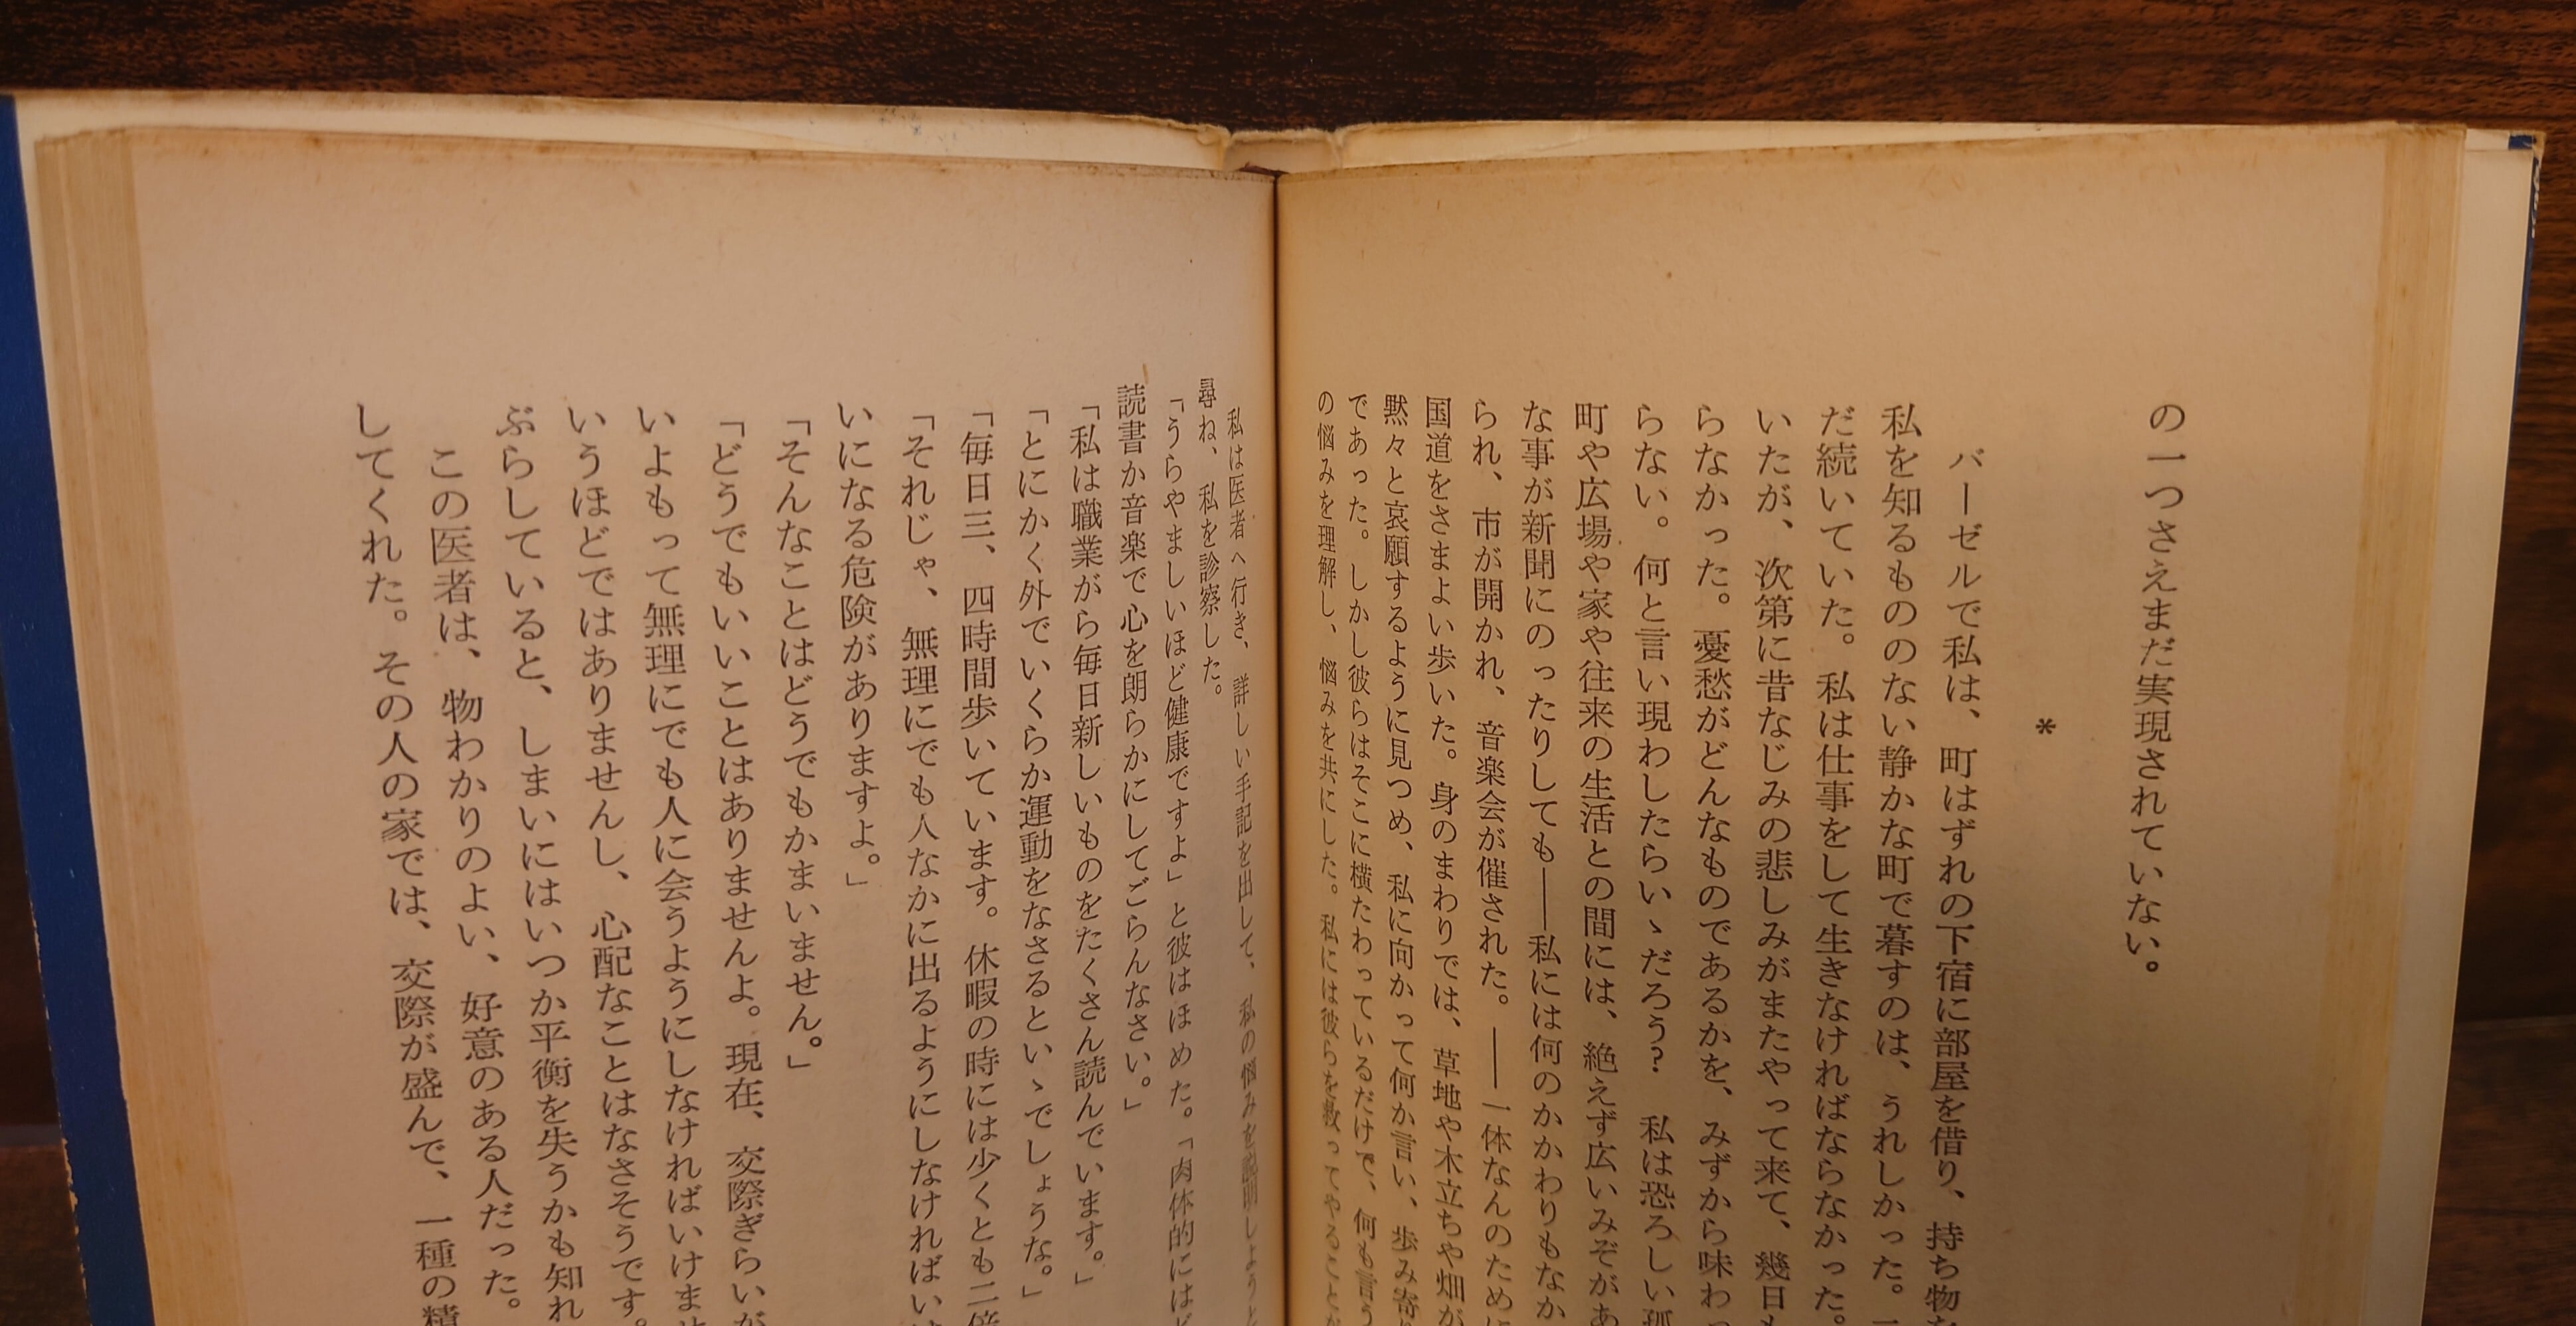 の一つさえまだ実現されていない。
*
バーゼルで私は、町はずれの下宿に部屋を借り、持ち物を
私を知るもののない静かな町で暮すのは、うれしかった。
だ続いていた。私は仕事をして生きなければならなかった。
いたが、次第に昔なじみの悲しみがまたやって来て、幾日も
らなかった。憂愁がどんなものであるかを、みずから味わっ
らない。何と言い現わしたらいゝだろう？　私は恐ろしい孤
町や広場や家や往来の生活との間には、絶えず広いみぞがあ
な事が新聞にのったりしても――私には何のかかわりもなか
られ、市が開かれ、音楽会が催された。――一体なんのために
国道をさまよい歩いた。身のまわりでは、草地や木立ちや畑が
黙々と哀願するように見つめ、私に向かって何か言い、歩み寄り
であった。しかし彼らはそこに横たわっているだけで、何も言う
の悩みを理解し、悩みを共にした。私には彼らを救ってやることが
私は医者へ行き、詳しい手記を出して、私の悩みを説明しようと
尋ね、私を診察した。
「うらやましいほど健康ですよ」と彼はほめた。「肉体的にはど
読書か音楽で心を朗らかにしてごらんなさい。」
「私は職業がら毎日新しいものをたくさん読んでいます。」
「とにかく外でいくらか運動をなさるといゝでしょうな。」
「毎日三、四時間歩いています。休暇の時には少くとも二倍
「それじゃ、無理にでも人なかに出るようにしなければい
いになる危険がありますよ。」
「そんなことはどうでもかまいません。」
「どうでもいいことはありませんよ。現在、交際ぎらいが
いよもって無理にでも人に会うようにしなければいけませ
いうほどではありませんし、心配なことはなさそうです。
ぶらしていると、しまいにはいつか平衡を失うかも知れ
この医者は、物わかりのよい、好意のある人だった。
してくれた。その人の家では、交際が盛んで、一種の精